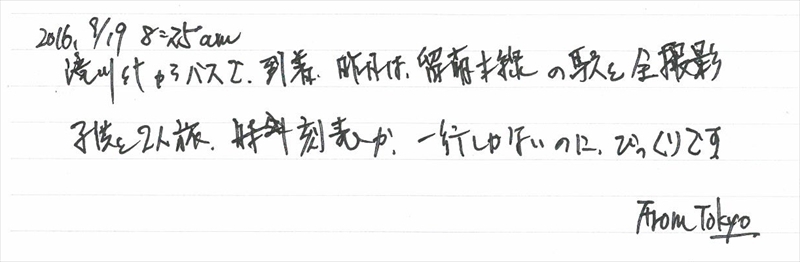 2016. 8/19 8:25am
滝川からバスで、到着、昨日は、留萌本線の駅を全撮影
子供と2人旅、時刻表が、一行しかないのに、びっくりです
From Tokyo